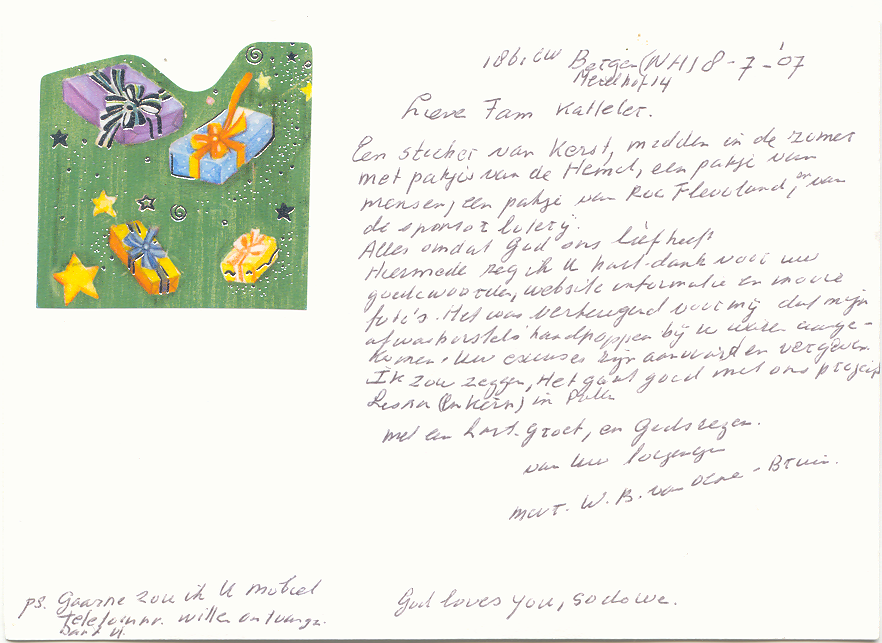 1861 CW Bergen (NH) 8-7-'07
Merelhof 14
Lieve Fam Katteler.
Een sticker van Kerst, midden in de zomer
met pakjes van de Hemel, een pakje van
mensen, een pakje van Roc Flevoland, en van
de sponsor loterij.
Alles omdat God ons liefheeft
Hiermede zeg ik U hart-dank voor uw
goede woorden, website informatie en mooie
foto's. Het was verheugend voor mij dat mijn
afwasborstels handpoppen bij u waren aange-
komen. Uw excuses zijn aanvaard en vergeven.
Ik zou zeggen, Het gaat goed met ons project
in Polen
met een hart. groet, en Gods zegen.
van Uw toegenegen
W. B. van - Bruin.
ps. Gaarne zou ik U mobiel
telefoonnr. willen ontvangen.
Dank U.
God loves you, so do we.